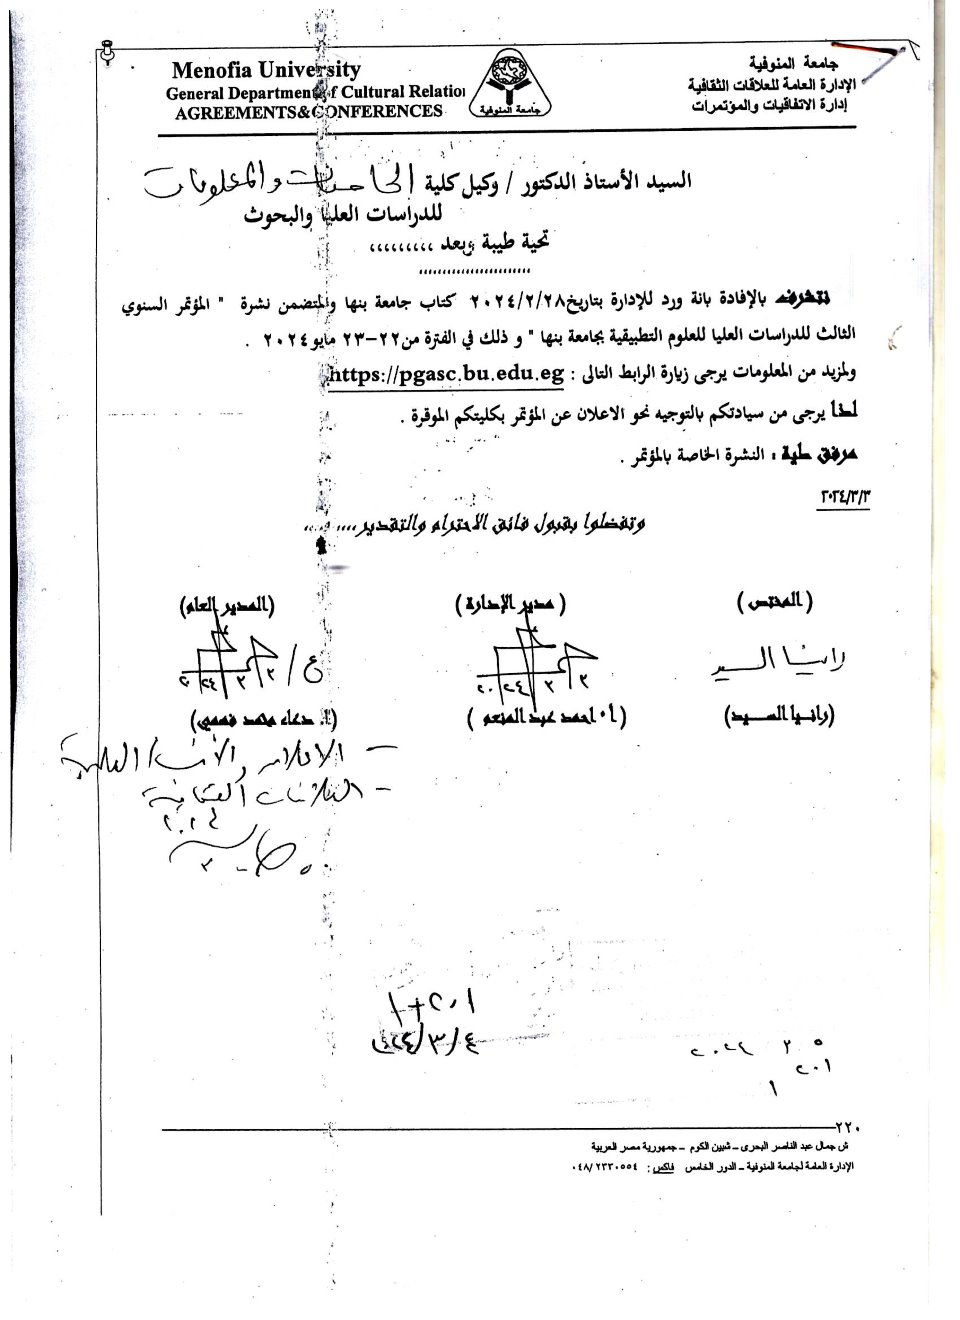 جامعة المنوفية
الإدارة العامة للعلاقات الثقافية
إدارة الاتفاقيات والمؤتمرات
Menofia University
General Department of Cultural Relation
AGREEMENTS&CONFERENCES
جامعة المنوفية
السيد الأستاذ الدكتور / وكيل كلية الحاسبات والمعلومات
للدراسات العليا والبحوث
تحية طيبة وبعد ,,,,,,,,,
نتشرف بالإفادة بانة ورد للإدارة بتاريخ ٢٠٢٤/٢/٢٨ كتاب جامعة بنها والمتضمن نشرة " المؤتمر السنوي
الثالث للدراسات العليا للعلوم التطبيقية بجامعة بنها " و ذلك في الفترة من ٢٢-٢٣ مايو ٢٠٢٤ .
ولمزيد من المعلومات يرجى زيارة الرابط التالى : https://pgasc.bu.edu.eg
لذا يرجى من سيادتكم بالتوجيه نحو الاعلان عن المؤتمر بكليتكم الموقرة .
مرفق طية : النشرة الخاصة بالمؤتمر .
٢٠٢٤/٣/٣
وتفضلوا بقبول فائق الاحترام والتقدير,,,, ,,,,
(المختص ) (مدير الإدارة ) (المدير العام)
رانيا السيد
(رانيا السيد) (أ٠ احمد عبد المنعم ) (أ. دعاء محمد فهمي)
- الاعلام
- العلاقات الثقافية
٢٠٢٤
١+٢٠١
٢٠٢٤/٣/٤
٥ ٣ ٢٠٢٤
٢٠١
١
٢٢٠
ش جمال عبد الناصر البحرى – شبين الكوم – جمهورية مصر العربية
الإدارة العامة لجامعة المنوفية – الدور الخامس فاكس : ٠٤٨/٢٢٣٠٥٥٤